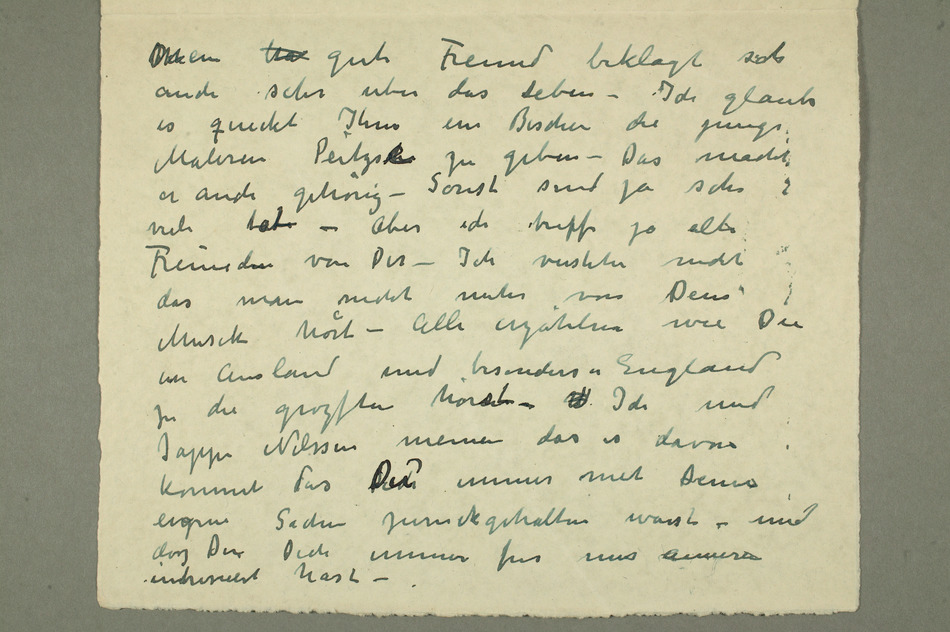 Mein gute Freund beklagt sich
auch sehr uber das Leben – Ich glaube
es quickt Ihm ein Bischen die junge
Malerin zu geben – Das macht
er auch gehörig – Sonst sind ja sehr
viele tot – Aber ich treffe ja alte
Freunden von Dir – Ich verstehe nicht
das man nicht mehr von Deine
Musik hört – Alle erzählen wie Du
im Ausland und besonders in England
zu die grozften hörst – Ich und
Jappe Nilssen meinen das es davon
kommt das Du immer met Deine
eigene Sachen zurückgehalten warst – und
dasz Du Dich immer fur uns andere
interesiert hast –